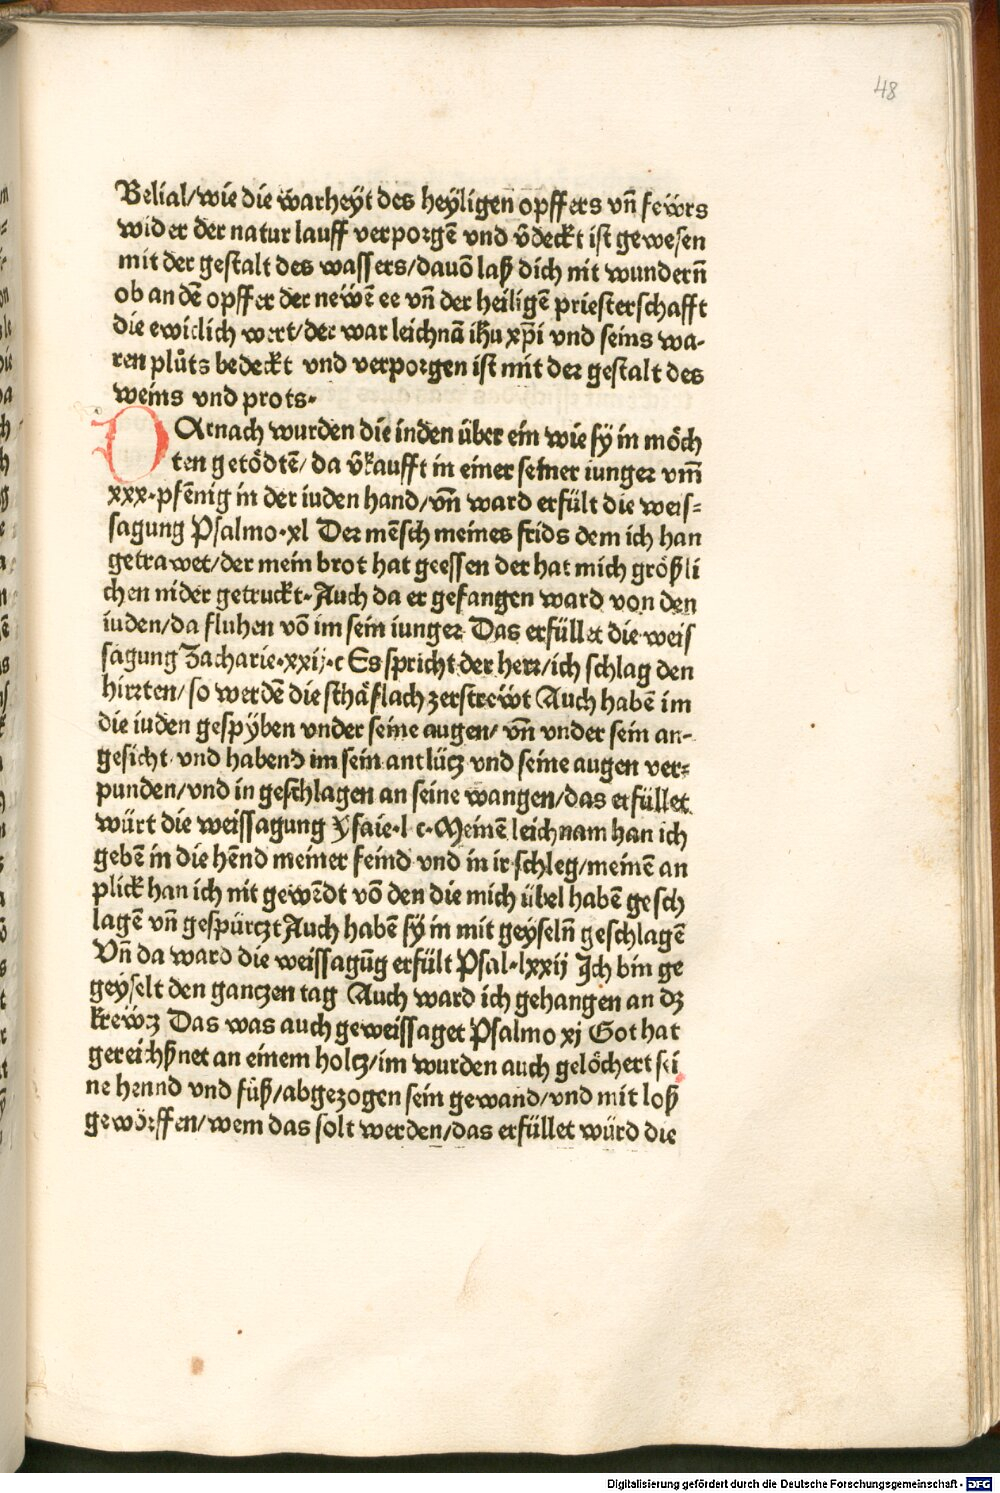 48
Belial/wie die warheyt des heyligen opffers vn̄ fewrs
wider der natur lauff verporgē vnd v̄deckt ist gewesen
mit der gestalt des wassers/dauō laß dich nit wundern̄
ob an dē opffer der newē ee vn̄ der heiligē priesterschafft
die ewiclich wert/der war leichnā ihu xp̄i vnd seins wa-
ren plůts bedeckt vnd verporgen ist mit der gestalt des
weins vnd prots.
DArnach wurden die iuden über ein wie sÿ in möch
ten getödtē/da v̄kaufft in einer seiner iunger vm̄
xxx.pfēnig in der iuden hand/vn̄ ward erfült die weis-
sagung Psalmo.xl Der mēsch meines frids dem ich han
getrawet/der mein brot hat geessen der hat mich größli
chen nider getruckt.Auch da er gefangen ward von den
iuden/da fluhen vō im sein iunger Das erfüllet die weis
sagung Zacharie.xxij.c Es spricht der herr/ich schlag den
hirrten/so werdē die schäflach zerstrewt Auch habē im
die iuden gespÿben vnder seine augen/vn̄ vnder sein an-
gesicht vnd habend im sein antlücz vnd seine augen ver-
punden/vnd in geschlagen an seine wangen/das erfüllet
würt die weissagung Ysaie.l c.Meinē leichnam han ich
gebē in die hēnd meiner feind vnd in ir schleg/meinē an
plick han ich nit gewēdt vō den die mich übel habē gesch
lagē vn̄ gespürczt Auch habē sÿ in mit geyseln̄ geschlagē
Vn̄ da ward die weissagūg erfült Psal.lxxij Ich bin ge
geyselt den ganczen tag Auch ward ich gehangen an dz
krewcz Das was auch geweissaget Psalmo xj Got hat
gereichßnet an einem holcz/im wurden auch gelöchert sei
ne hennd vnd füß/abgezogen sein gewand/vnd mit loß
gewörffen/wem das solt werden/das erfüllet würd die
Digitalisierung gefördert durch die Deutsche Forschungsgemeinschaft - DFG